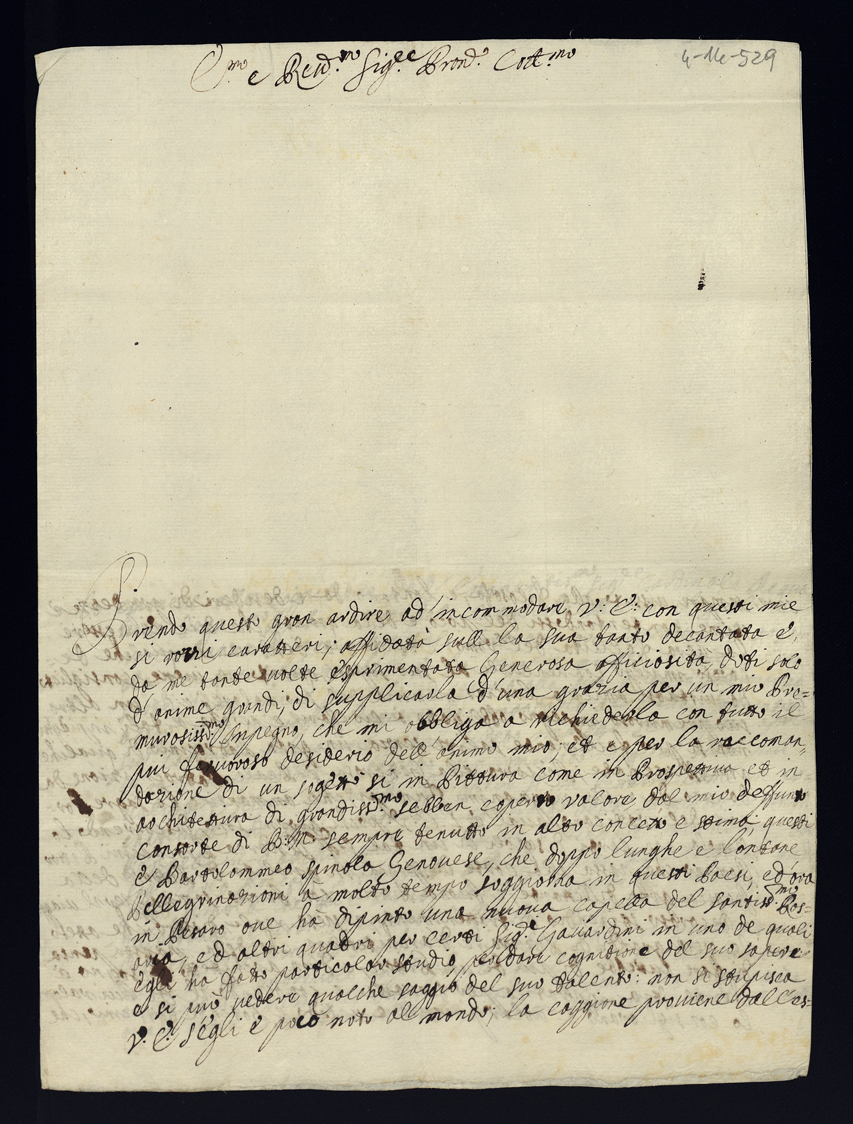 E.mo e Reud.mo Sig.re Pron.o Coll.mo
4-14-529
Prendo questo gran ardire ad incommodare V: E: con questi mie
si rozzi caratteri; affidata sull la sua tanto decantata è,
da me tante volte esprimentata Generosa officiosità, doti solo
d'anime grandi; di supplicarla d'una grazia per un mio Pre=
murosiss.mo Impegno, che mi obbliga a richiederla con tutto il
piu feruoroso desiderio dell'animo mio; et e per la raccoman,
dazione di un sogetto si in Pittura come in Prospettiua et in
architettura di grandiss.mo sebben coperto valore dal mio deffunto
consorte di B:M: sempre tenutto in alto conceto e stima, questi
è Bartolommeo spinola Genouese, che doppo lunghe e lontane
Pellegrinazioni a molto tempo soggiorna in questi Paesi, ed ora
in Pesaro oue ha dipinto una nuoua capella del santiss.mo Ros=
ario, ed altri quadri per certi Sig.ri Gauardini in uno de quali
egli ha fatto particolar studio, per dare cognitione del suo sapere
e si può uedere qualche saggio del suo talento: non si stupisca
V: E: s'egli è poco noto al mondo; la caggione prouiene dall'es=